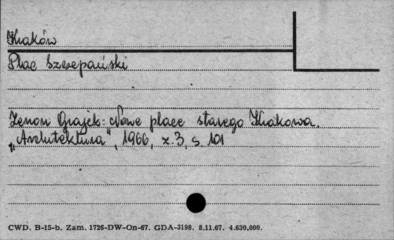 Kraków
Plac Szczepański
Zenon Grajek: Nowe place starego Krakowa.
„Architektura", 1966, z.3, s. 101
CWD. B-15-b. Zam. 1726-DW-On-67. GDA-3198. 8.11.67. 4.630,000.